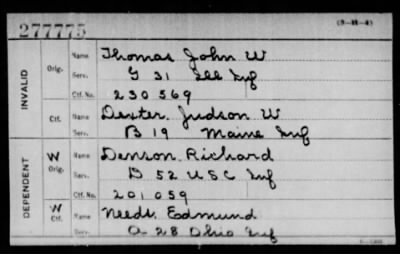 277775 (3-111-4)
INVALID
Orig. Name Thomas John W
Serv. G 31 Ill Inf
Ctf. No. 230 569
Ctf. Name Dexter, Judson W
Serv. B 19 Maine Inf
DEPENDENT
W Orig. Name Denson, Richard
Serv. D 52 U S C Inf
Ctf. No. 201 059
W Ctf. Name Needs, Edmund
Serv. A 28 Ohio Inf